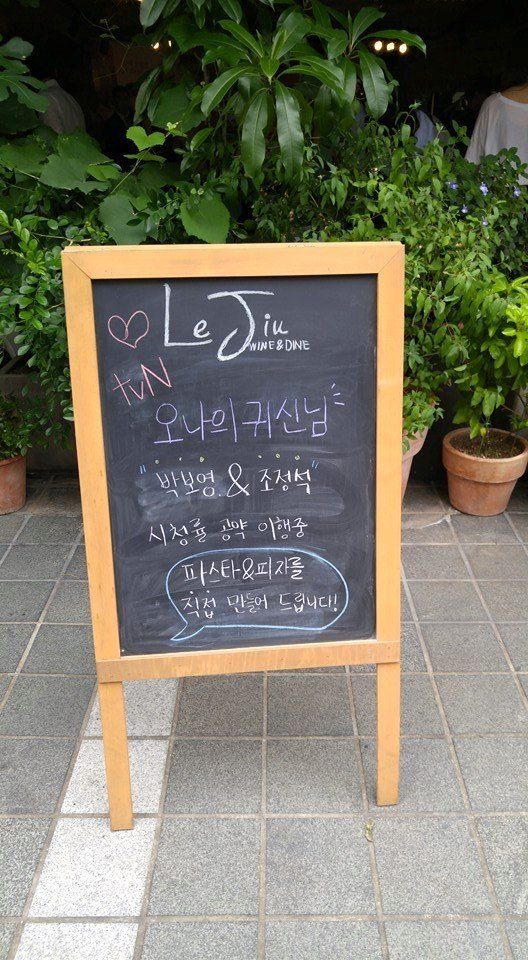 Le Jiu
WINE & DINE
tvN
오나의귀신님
"박보영 & 조정석"
시청률 공약 이행중
파스타&피자를
직접 만들어 드립니다!